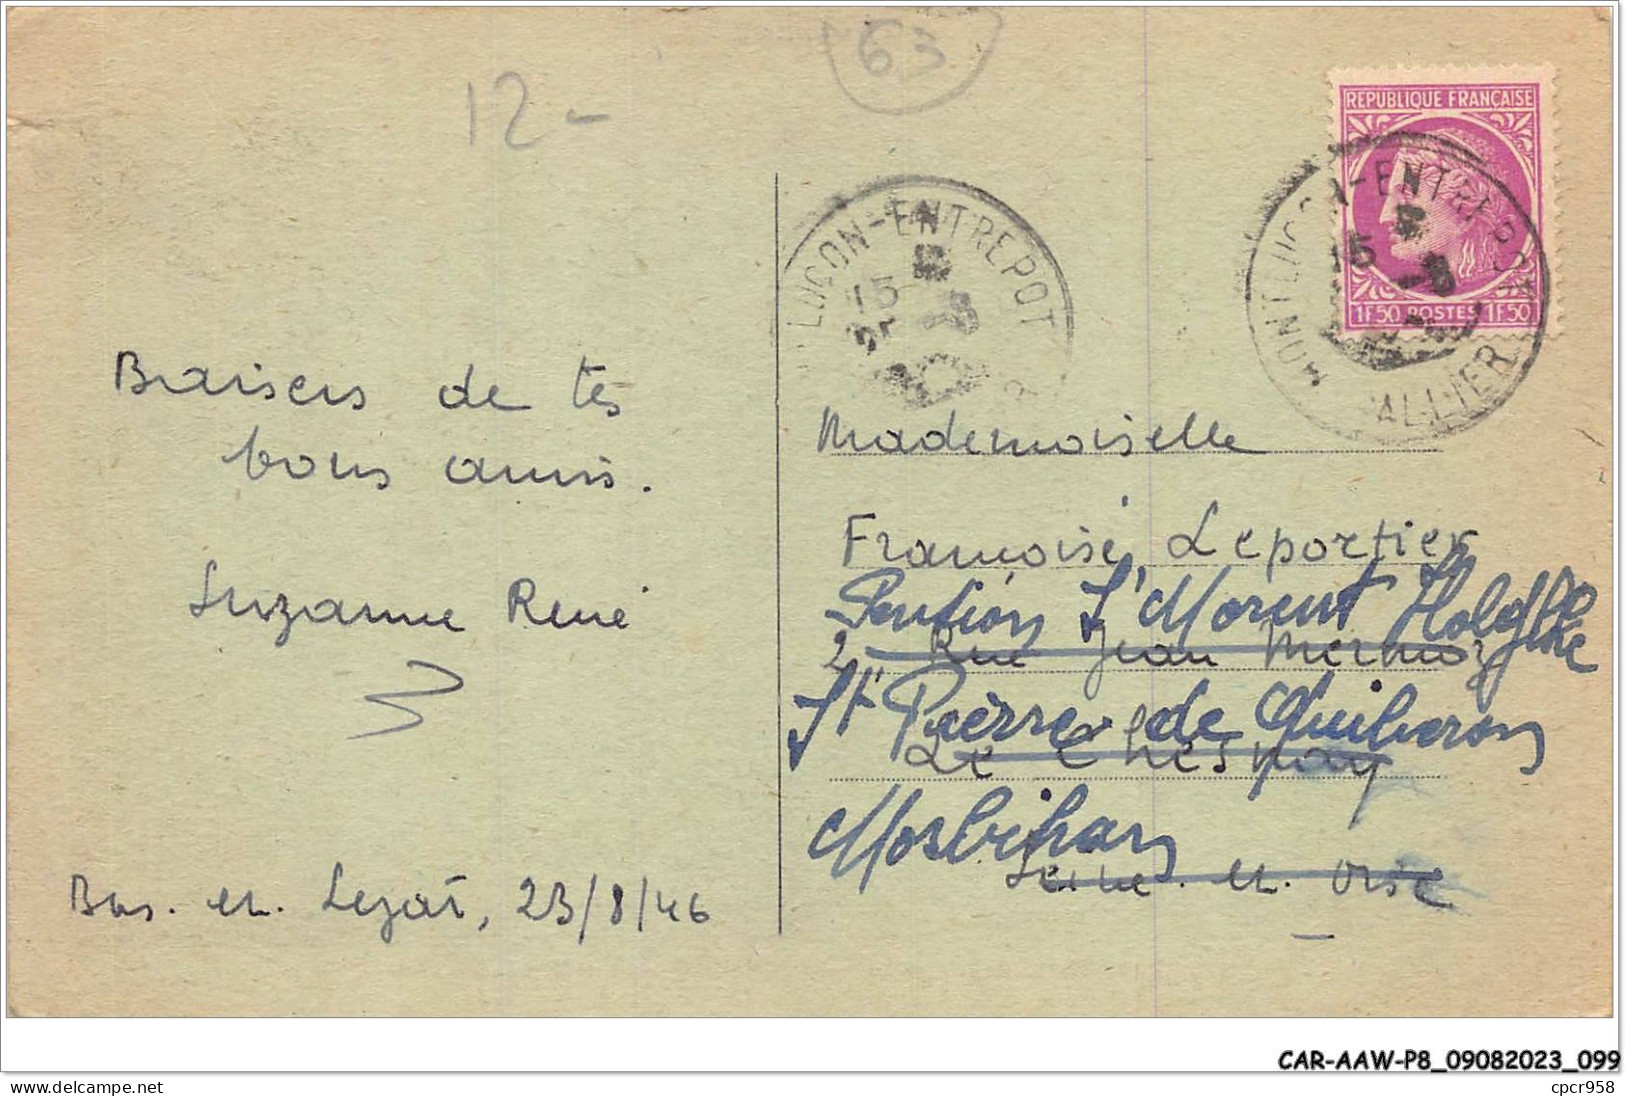 12-
63
RÉPUBLIQUE FRANÇAISE
1F50 POSTES 1F50
MONTLUÇON-ENTREPOT
15
ALLIER
LUÇON-ENTREPOT
15
Baisers de tes
bons amis.
Suzanne René
Bas. en. Lezat, 23/8/46
Mademoiselle
Françoise Leportier
2 Rue Jean Mermoz
Le Chesnay
Seine. et. Oise
St Pierre de Quiberon
Morbihan
CAR-AAW-P8_09082023_099
www.delcampe.net
cpcr958